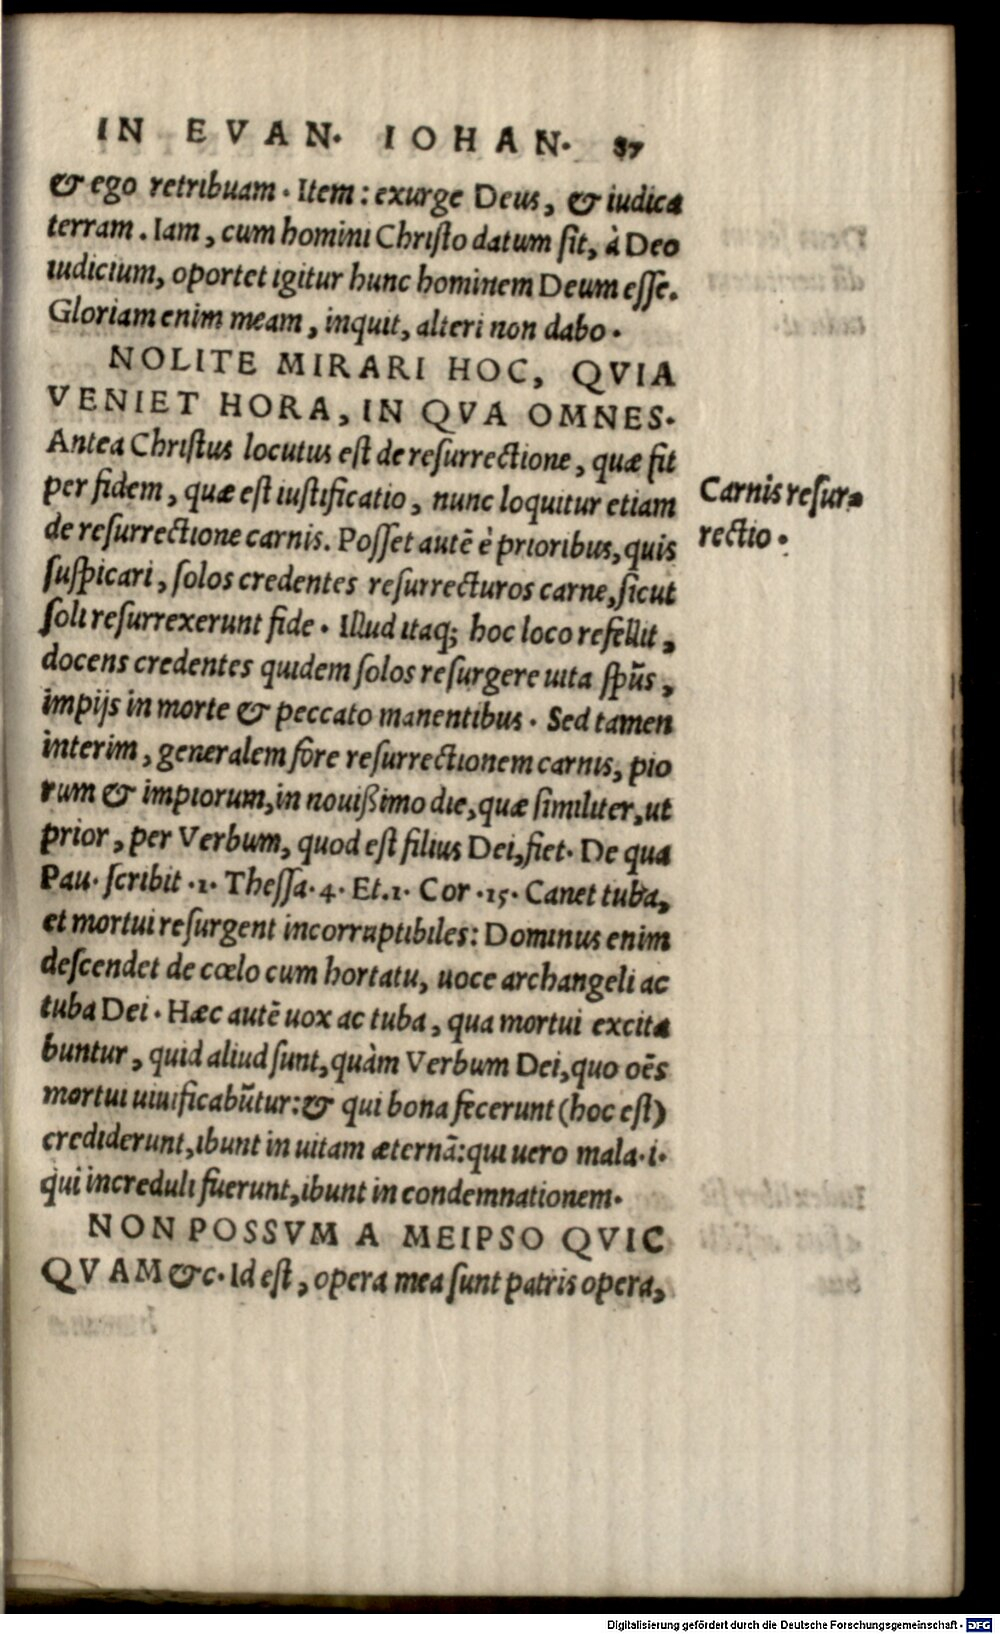 IN EVAN. IOHAN. 87
& ego retribuam. Item: exurge Deus, & iudica
terram. Iam, cum homini Christo datum sit, à Deo
iudicium, oportet igitur hunc hominem Deum esse.
Gloriam enim meam, inquit, alteri non dabo.
NOLITE MIRARI HOC, QVIA
VENIET HORA, IN QVA OMNES.
Antea Christus locutus est de resurrectione, quæ fit
per fidem, quæ est iustificatio, nunc loquitur etiam
de resurrectione carnis. Posset autē è prioribus, quis
suspicari, solos credentes resurrecturos carne, sicut
soli resurrexerunt fide. Illud itaq; hoc loco refellit,
docens credentes quidem solos resurgere uita spūs,
impijs in morte & peccato manentibus. Sed tamen
interim, generalem fore resurrectionem carnis, pio
rum & impiorum, in nouißimo die, quæ similiter, ut
prior, per Verbum, quod est filius Dei, fiet. De qua
Pau. scribit .1. Thessa. 4. Et .1. Cor .15. Canet tuba,
et mortui resurgent incorruptibiles: Dominus enim
descendet de cœlo cum hortatu, uoce archangeli ac
tuba Dei. Hæc autē uox ac tuba, qua mortui excita
buntur, quid aliud sunt, quàm Verbum Dei, quo oēs
mortui uiuificabūtur: & qui bona fecerunt (hoc est)
crediderunt, ibunt in uitam æternā: qui uero mala .i.
qui increduli fuerunt, ibunt in condemnationem.
NON POSSVM A MEIPSO QVIC
QVAM &c. Id est, opera mea sunt patris opera,
Carnis resur=
rectio.
Digitalisierung gefördert durch die Deutsche Forschungsgemeinschaft - DFG